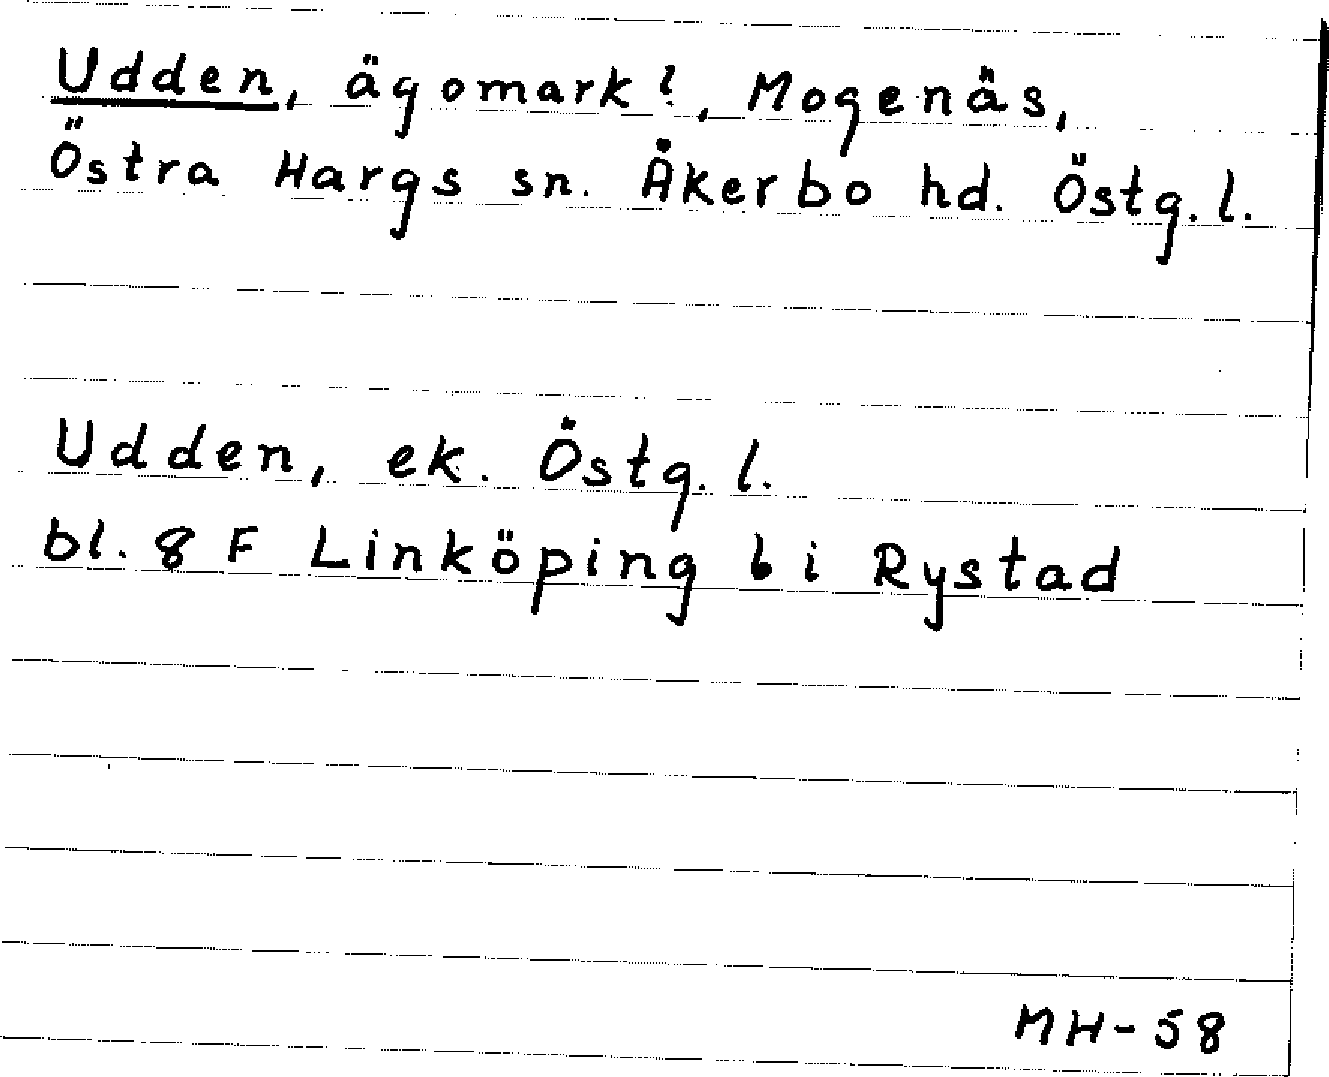 Udden, ägomark?, Mogenäs,
Östra Hargs sn. Åkerbo hd. Östg. l.
Udden, ek. Östg. l.
bl. 8 F Linköping b i Rystad
MH-58